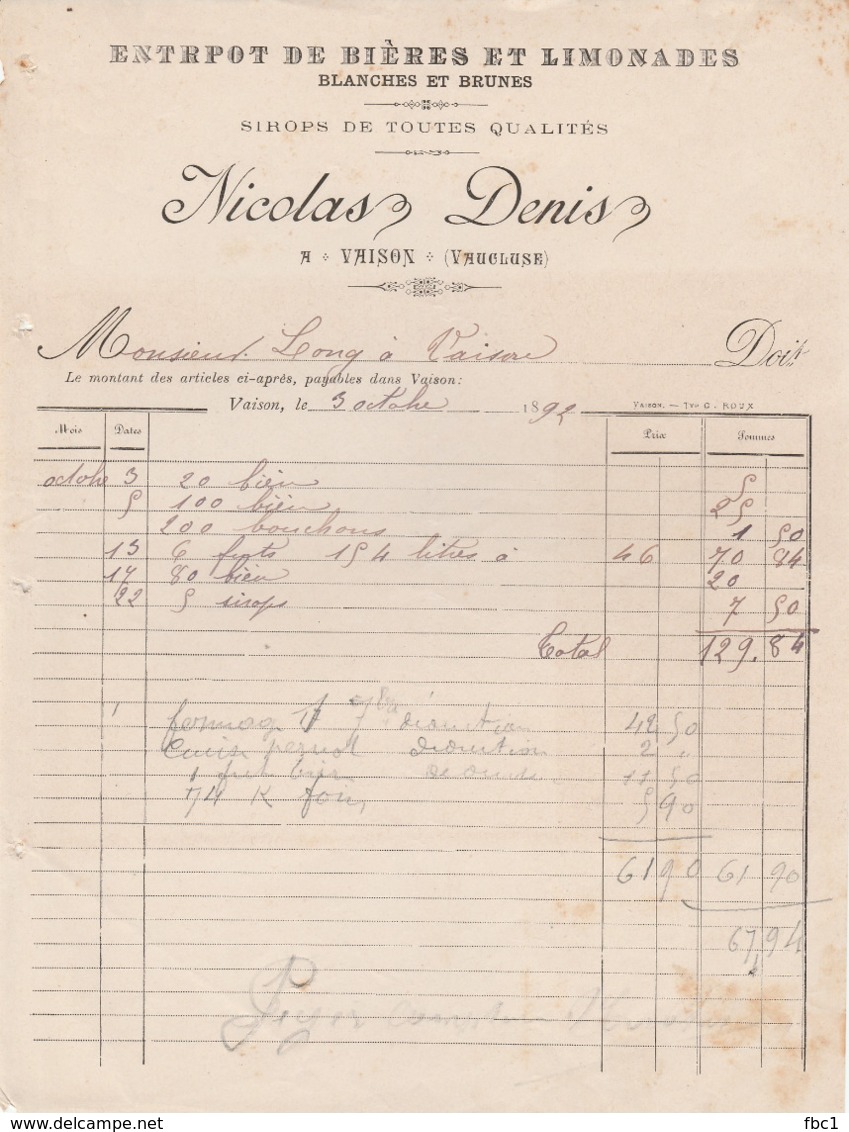 ENTRPOT DE BIÈRES ET LIMONADES
BLANCHES ET BRUNES
SIROPS DE TOUTES QUALITÉS
Nicolas Denis
A VAISON (VAUCLUSE)
Monsieur Long à Vaison Doit
Le montant des articles ci-après, payables dans Vaison:
Vaison, le 3 octobre 1892 VAISON. — TYP. G. ROUX
Mois Dates Prix Sommes
octobre 3 20 bièr 5
5 100 bièr 25
200 bouchons 1 50
13 6 futs 154 litres à 46 70 84
17 80 bièr 20
22 5 sirops 7 50
Total 129.84
42 50
2 "
1 11 50
74 K foin 5 90
61 90 61 90
67,94
Payer
www.delcampe.net fbc1